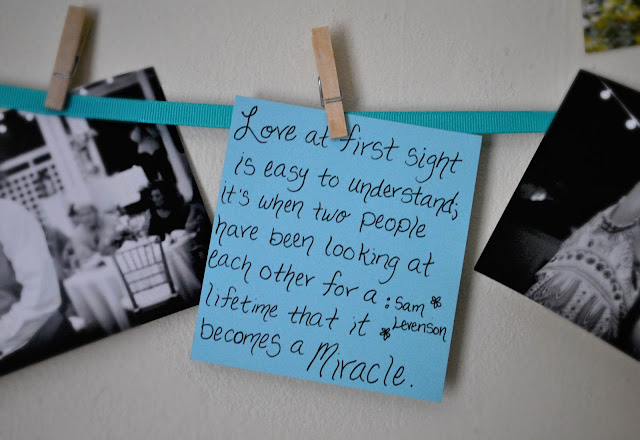 Love at first sight
is easy to understand;
it's when two people
have been looking at
each other for a : Sam
lifetime that it Levenson
becomes a Miracle.